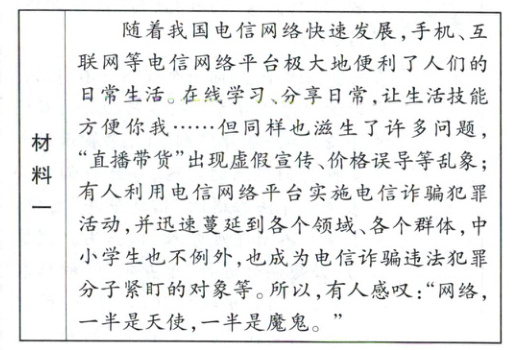 材料一
随着我国电信网络快速发展，手机、互
联网等电信网络平台极大地便利了人们的
日常生活。在线学习、分享日常，让生活技能
方便你我……但同样也滋生了许多问题，
“直播带货”出现虚假宣传、价格误导等乱象；
有人利用电信网络平台实施电信诈骗犯罪
活动，并迅速蔓延到各个领域、各个群体，中
小学生也不例外，也成为电信诈骗违法犯罪
分子紧盯的对象等。所以，有人感叹：“网络，
一半是天使，一半是魔鬼。”